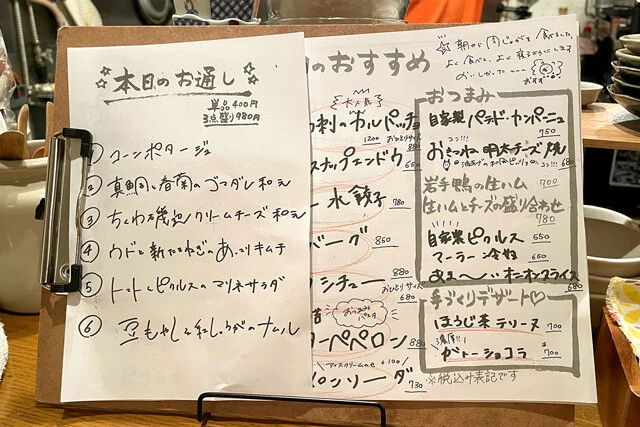 本日のお通し
単品400円
3点盛り980円
① コーンポタージュ
② 真鯛と春菊のゴマダレ和え
③ ちくわと磯辺クリームチーズ和え
④ ウドと新たまねぎのあっさりキムチ
⑤ トマトとピクルスのマリネサラダ
⑥ 豆もやしと紅しょうがのナムル
のおすすめ
大人気
刺のカルパッチ
1200
880
スナップエンドウ 650
水餃子 780
バーグ 850
シチュー 880
おひとりサイズ 680
おつまみパスタ
ーペペロン 880
アイスクリームのせ +100
ポンソーダ 730
おつまみ
自家製 パテ・ド・カンパーニュ 750
おきつね 明太チーズ焼 680
岩手鴨の生ハム 700
生ハムとチーズの盛り合わせ 780
自家製ピクルス 550
マーラー冷奴 650
オーオンスライス 680
手づくりデザート♡
ほうじ茶テリーヌ 700
濃厚!!
ガトーショコラ 700
※税込み表記です